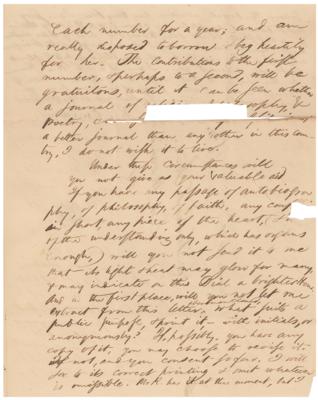 each number for a year; and am
really disposed to borrow & beg heartily
for her. The contributions to the first
number, & perhaps to a second, will be
gratuitous, until it can be seen whether
a journal of
poetry,
a better journal than any other in this coun-
try, I do not wish it to live.
Under these circumstances will
you not give us your valuable aid
If you have any passage of autobiogra-
phy, of philosophy, of faith, any
in short, any piece of the heart,
of the understanding only, which has organs
enough,) will you not send it to me
that its light & heat may glow for many,
& may indicate on this Dial a brighter
And in the first place, will you not let me
extract from this letter, what suits a
public purpose, & print it with initials, or
anonymously? If, possibly, you have any
copy of it, you may choose to revise it
if not, and you consent so far, I will
see to its correct printing & omit whatever
is omissible. Mr R. has it at the moment, but I